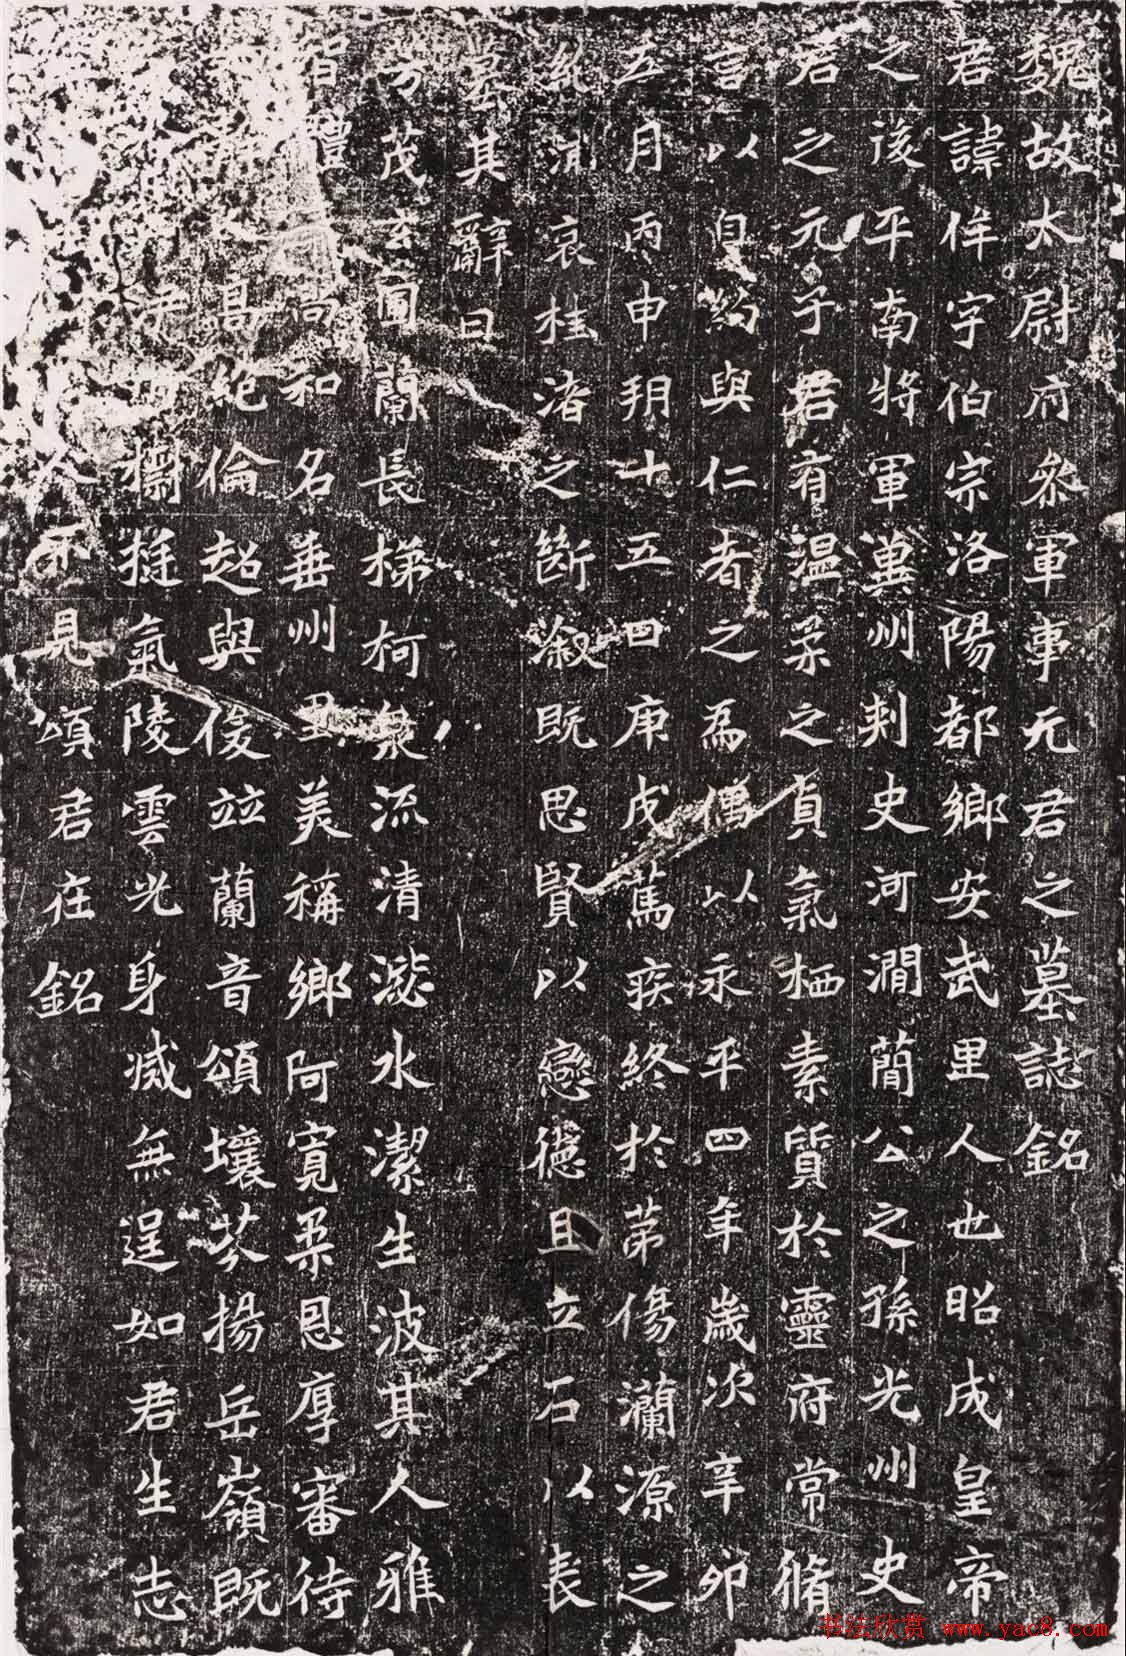 魏故太尉府叅軍事元君之墓誌銘
君諱侔字伯宗洛陽都鄉安武里人也昭成皇帝
之後平南將軍冀州刺史河澗簡公之孫光州史
君之元子君有温柔之貞氣栖素質於靈府常脩
言以自約與仁者之為儔以永平四年歲次辛卯
五月丙申朔十五四庚戌篤疾終於第傷瀾源之
消哀桂渚之斷漵既思賢以戀德且立石以表
墓其辭曰
茂玄圃蘭長梯柯泉流清泌水潔生波其人雅
尚和名垂州里美稱鄉阿寬柔恩厚審待
昌絶倫超與俊竝蘭音頌壤芬揚岳嶺既
挺氣陵雲光身滅無逞如君生志
不見頌君在銘
书法欣赏 www.yac8.com